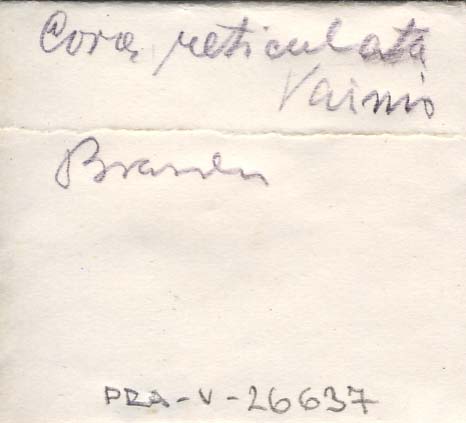 Cora reticulata
Vainio
PRA-V-26637